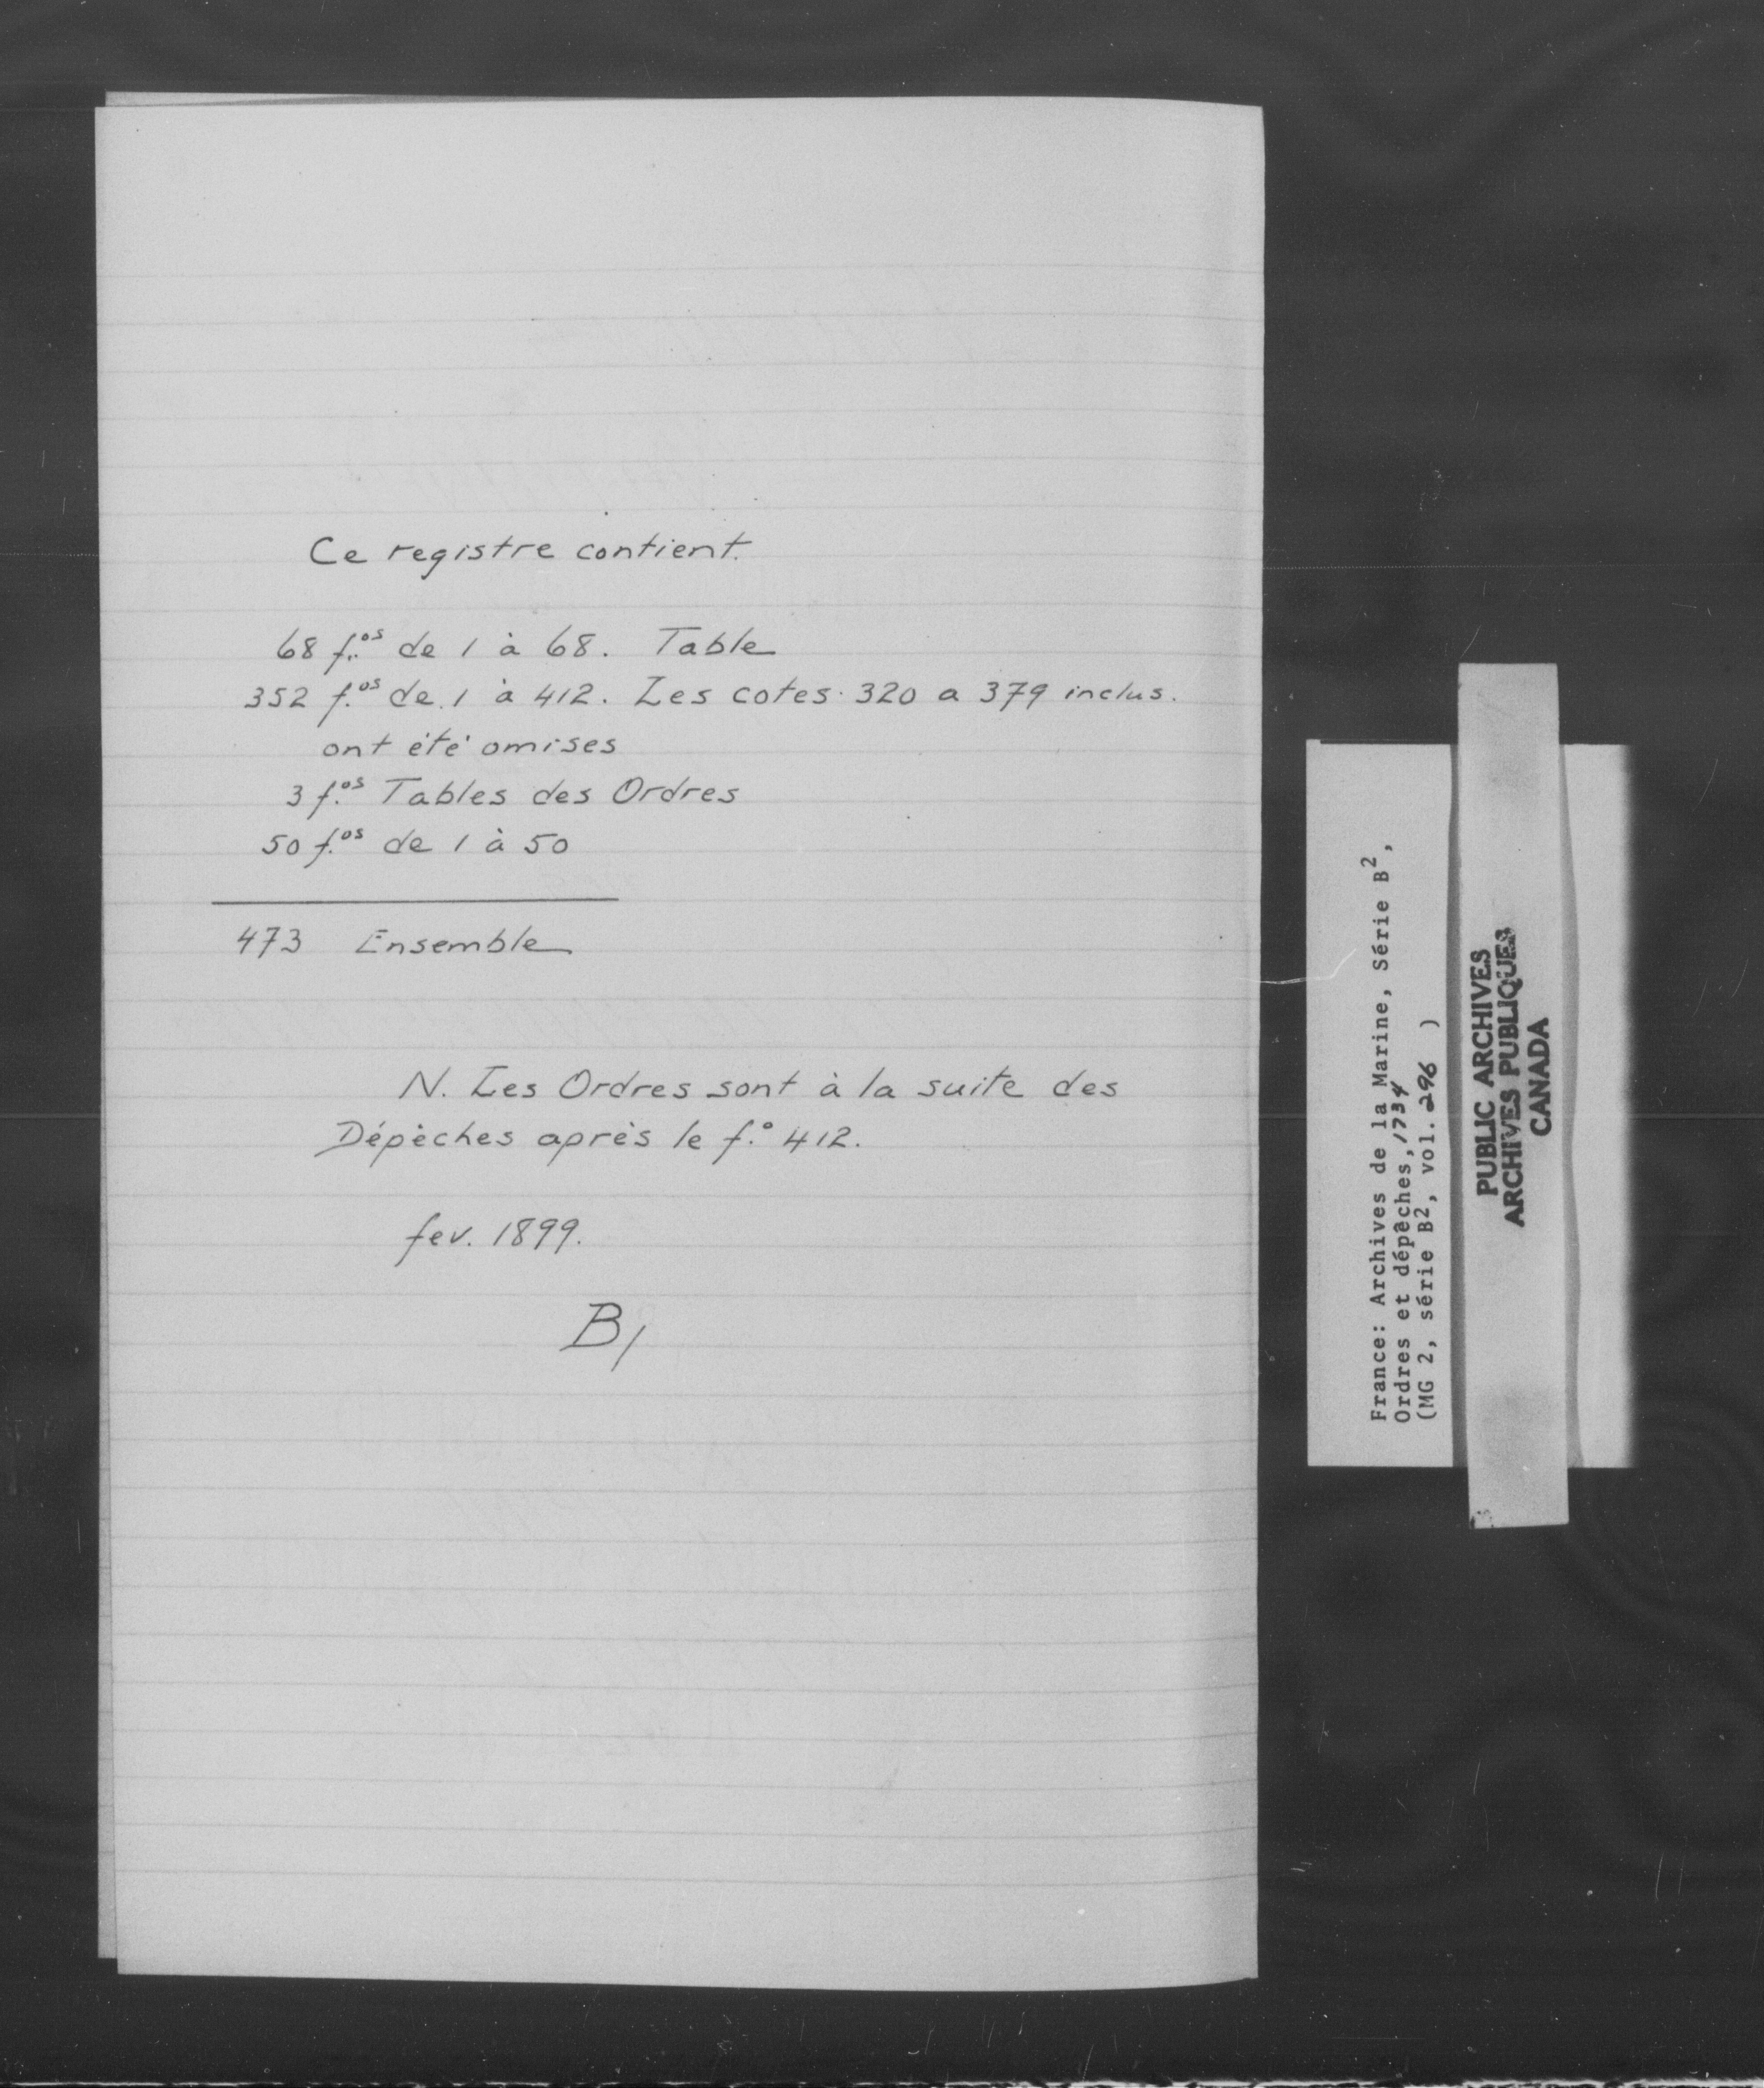 Ce registre contient.
68 f.os de 1 à 68. Table
352 f.os de 1 à 412. Les cotes 320 a 379 inclus.
ont été omises
3 f.os Tables des Ordres
50 f.os de 1 à 50
473 Ensemble
N. Les Ordres sont à la suite des
Dépèches après le f.o 412.
fev. 1899.
B/
France: Archives de la Marine, Série B2,
Ordres et dépêches, 1734
(MG 2, série B2, vol. 296 )
PUBLIC ARCHIVES
ARCHIVES PUBLIQUES
CANADA